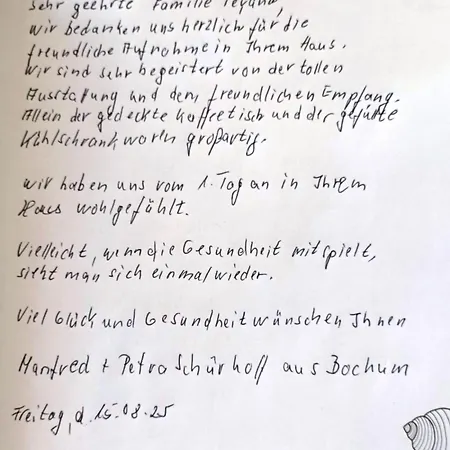 Sehr geehrte Familie
wir bedanken uns herzlich für die
freundliche Aufnahme in Ihrem Haus.
Wir sind sehr begeistert von der tollen
Ausstattung und dem freundlichen Empfang.
Allein der gedeckte Kaffeetisch und der gefüllte
Kühlschrank waren großartig.
Wir haben uns vom 1. Tag an in Ihrem
Haus wohlgefühlt.
Vielleicht, wenn die Gesundheit mitspielt,
sieht man sich einmal wieder.
Viel Glück und Gesundheit wünschen Ihnen
Manfred + Petra Schürhoff aus Bochum
Freitag, d. 15.08.25